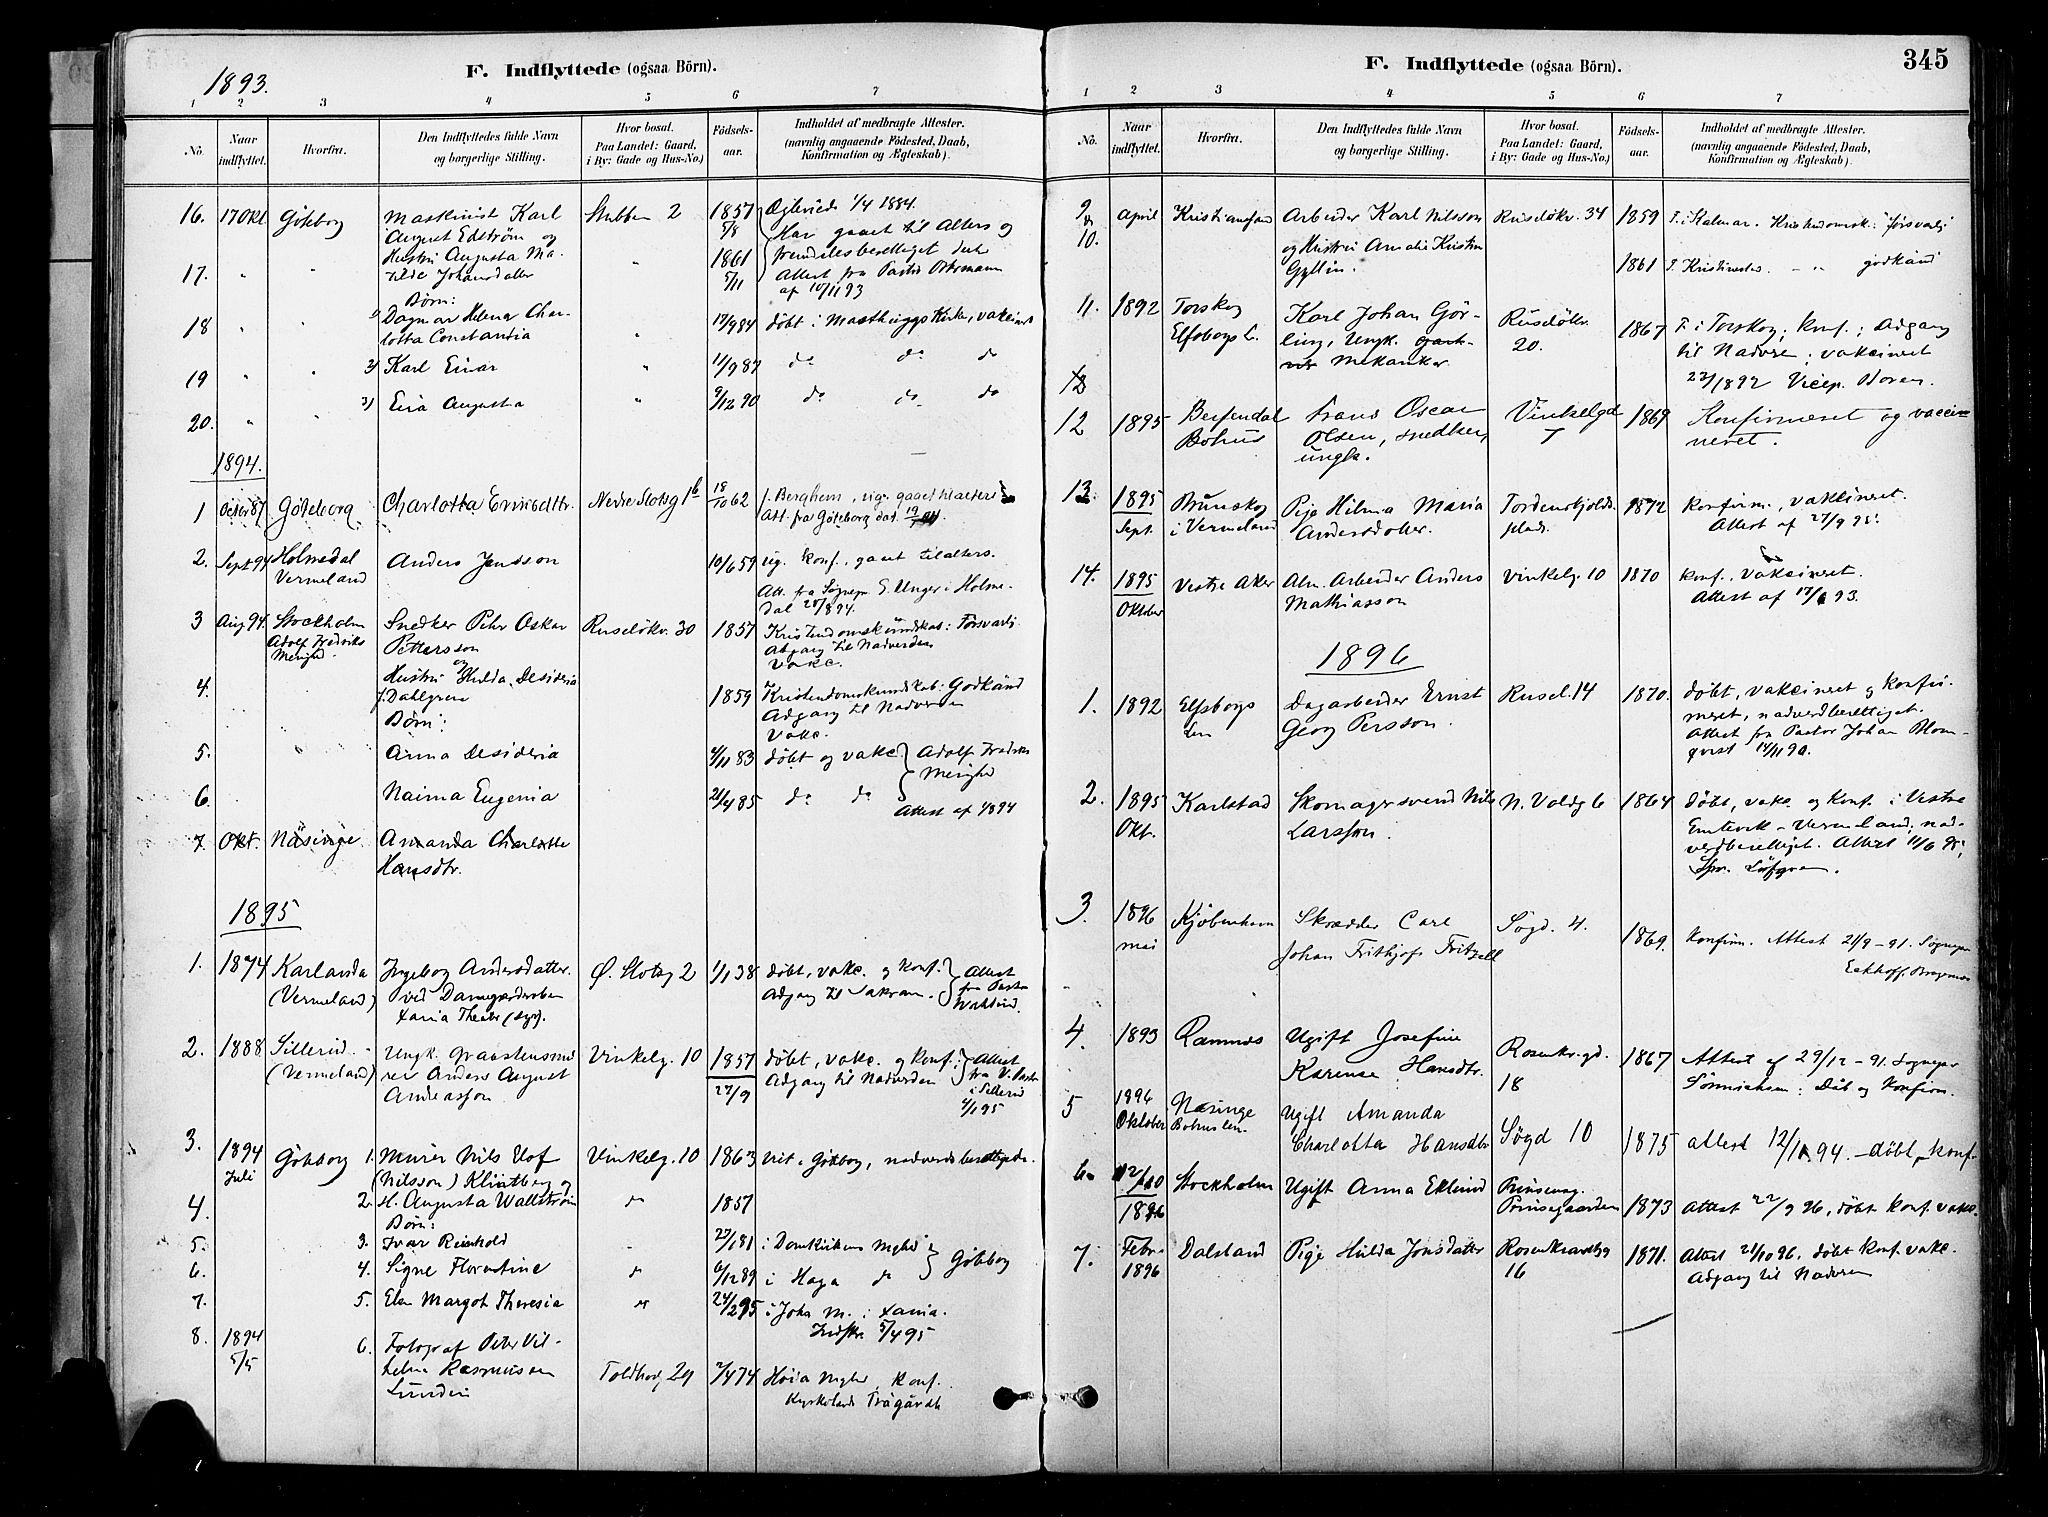 1893.
F. Indflyttede (ogsaa Börn).
1 2 3 4 5 6 7
No.
Naar indflyttet.
Hvorfra.
Den Indflyttedes fulde Navn og borgerlige Stilling.
Hvor bosat. Paa Landet: Gaard, i By: Gade og Hus-No.)
Födsels-aar.
Indholdet af medbragte Attester. (navnlig angaaende Födested, Daab, Konfirmation og Ægteskab).
16. 17 Okt Göteborg Maskinist Karl Stubben 2 1857
August Edström og 5/8
17. " " Hustru Augusta Ma- " 1861
tilde Johansdatter 5/11
Ægteviede 1/4 1884.
Har gaaet til Alters og
fremdeles berettiget det
Attest fra Pastor
af 10/11 93
Börn:
18 Dagmar Helena Char- 17/9 84 döbt i Masthuggs Kirke, vakcineret
lotta Constantia
19 " " 2) Karl Einar " 11/9 87 do do do
20. " " 3) Eva Augusta " 9/12 90 do do do
1894.
1 Octer 87 Göteborg Charlotta Ernsdttr. Nedre Slotsg 1b 18/10 62 f. Berghem, ug. gaaet til alters
Att. fra Göteborg dat.
2. Sept 94 Holmedal Anders Jansson 10/6 59 ug. konf., gaaet til alters.
Vermeland
Att. fra Sognepr. E. Unger i Holme-
dal 28/8 94.
3 Aug 94. Stockholm Snedker Pehr Oskar Ruselökv. 30 1857 Kristendomskundskab: Försvarlig
Adolf Fredriks Pettersson Adgang til Nadverden
Menighed. og Vakc.
4. Hustru Hulda Desideria 1859 Kristendomskundskab: Godkänd
f. Dahlgren Adgang til Nadverden
Börn: Vakc.
5. " Anna Desideria 4/11 83 döbt og vakc. Adolf Fredriks
Menighed
6. Naima Eugenia 21/4 85 do do
Attest af 1894
7. Okt. Näsinge Amanda Charlotte
Hansdtr.
1895
1. 1874 Karlanda Ingeborg Andersdatter. Ø. Slotsg 2 1/1 38 döbt, vakc. og konf. Attest
(Vermeland) ved Damegarderoben Adgang til Sakram. fra Pastor
Xania Theater (syer). Wahlund.
2. 1888 Sillerud Ungk. Vinkelg. 10 1857 döbt, vakc. og konf. Attest
(Vermeland) Anders August 27/9 Adgang til Nadverden fra V. Pastor
Andreasson i Sillerud
4/1 95
3. 1894 Göteborg 1. Murer Nils Olof Vinkelg. 10 1863 vit. i Göteborg, nadverdsberettigede.
Juli (Nilsson)
4. 2. H. Augusta Wallström do 1857
Börn:
5. 3. Ivar Reinhold 23/1 81 i Domkirkens Mghd
6. 4. Signe Florentine do 6/12 89 i Haga do Göteborg
7. 5. Elsa Margot Theresia do 24/2 95 i Joha M. i Xania.
5/4 95
8. 1894 6. Fotograf Peter Vil- Toldbodg 29 2/4 74
5/5 helm Rasmussen konf.
Lundin
F. Indflyttede (ogsaa Börn). 345
1 2 3 4 5 6 7
No.
Naar indflyttet.
Hvorfra.
Den Indflyttedes fulde Navn og borgerlige Stilling.
Hvor bosat. Paa Landet: Gaard, i By: Gade og Hus-No.)
Födsels-aar.
Indholdet af medbragte Attester. (navnlig angaaende Födested, Daab, Konfirmation og Ægteskab).
9 April Kristianssand Arbeider Karl Nilsson Ruselökv. 34 1859 F. i Kalmar. Kristendomsk.: försvarlig
10. og Hustru Amalie Kristina 1861 F. godkänd
Gyllin.
11. 1892 Torskog Karl Johan Gör- Ruselökv. 1867 F. i Torskog; konf.; Adgang
Elfsborgs L. ling, Ungk. 20. til Nadvere; vakcineret
Mekaniker 22/1892 Vicep. Boren.
12 1895 Berfendal Frans Oscar Vinkelgd 1869 Konfirmeret og vacci-
Bohus Olsen, snedker, 7 neret.
ungk.
13 1895 Brunskog Pige Hilma Maria Tordenskjolds 1872 konfirm., vakcineret.
Sept. i Vermeland Andersdoter. plads. Attest af 27/9 95.
14. 1895 Vestre Aker Alm. Arbeider Anders Vinkelg. 10 1870 konf., vakcineret.
Oktober Mathiasson Attest af
1896
1. 1892 Elfsborgs Dagarbeider Ernst Rusel. 14 1870. döbt, vakcineret og konfir-
len Georg Persson. meret, nadverdberettiget.
Attest fra Pastor Johan Blom-
qvist 14/11 90.
2. 1895 Karlstad Skomagersvend Nils N. Voldg 6 1864 döbt, vakc. og konf. i Vestra
Okt. Larsson. Emtervik - Vermland, nad-
verdberettiget. Attest 11/6 95,
Spr. Löfgren.
3 1896 Kjöbenhavn Skrædder Carl Søgd. 4. 1869. Konfirm. Attest 21/9-91. Sognepr
mai Johan Frithjof Fritzell Eckhoff
4. 1893 Ramnæs Ugift Josefine Rosenkr.gd. 1867 Attest af 29/12-91. Sognepr
Karense Hansdtr. 18 Sönnichsen: Döb og konfirm.
5 1896 Næsinge Ugift Amanda Søgd 10 1875 attest 12/11 94. - döbt, konf.
Oktober Bohuslen Charlotta Hansdtr
6. 12/10 Stockholm Ugift Anna Eklund Prinsensg. 1873 Attest 22/9 96, döbt konf. vakc.
1896 Prinsegaarden
7. Febr. Dalsland Pige Hulda Jonsdatter Rosenkrantzg 1871. Attest 21/10 96. döbt konf. vakc.
1896 16 Adgang til Nadvere